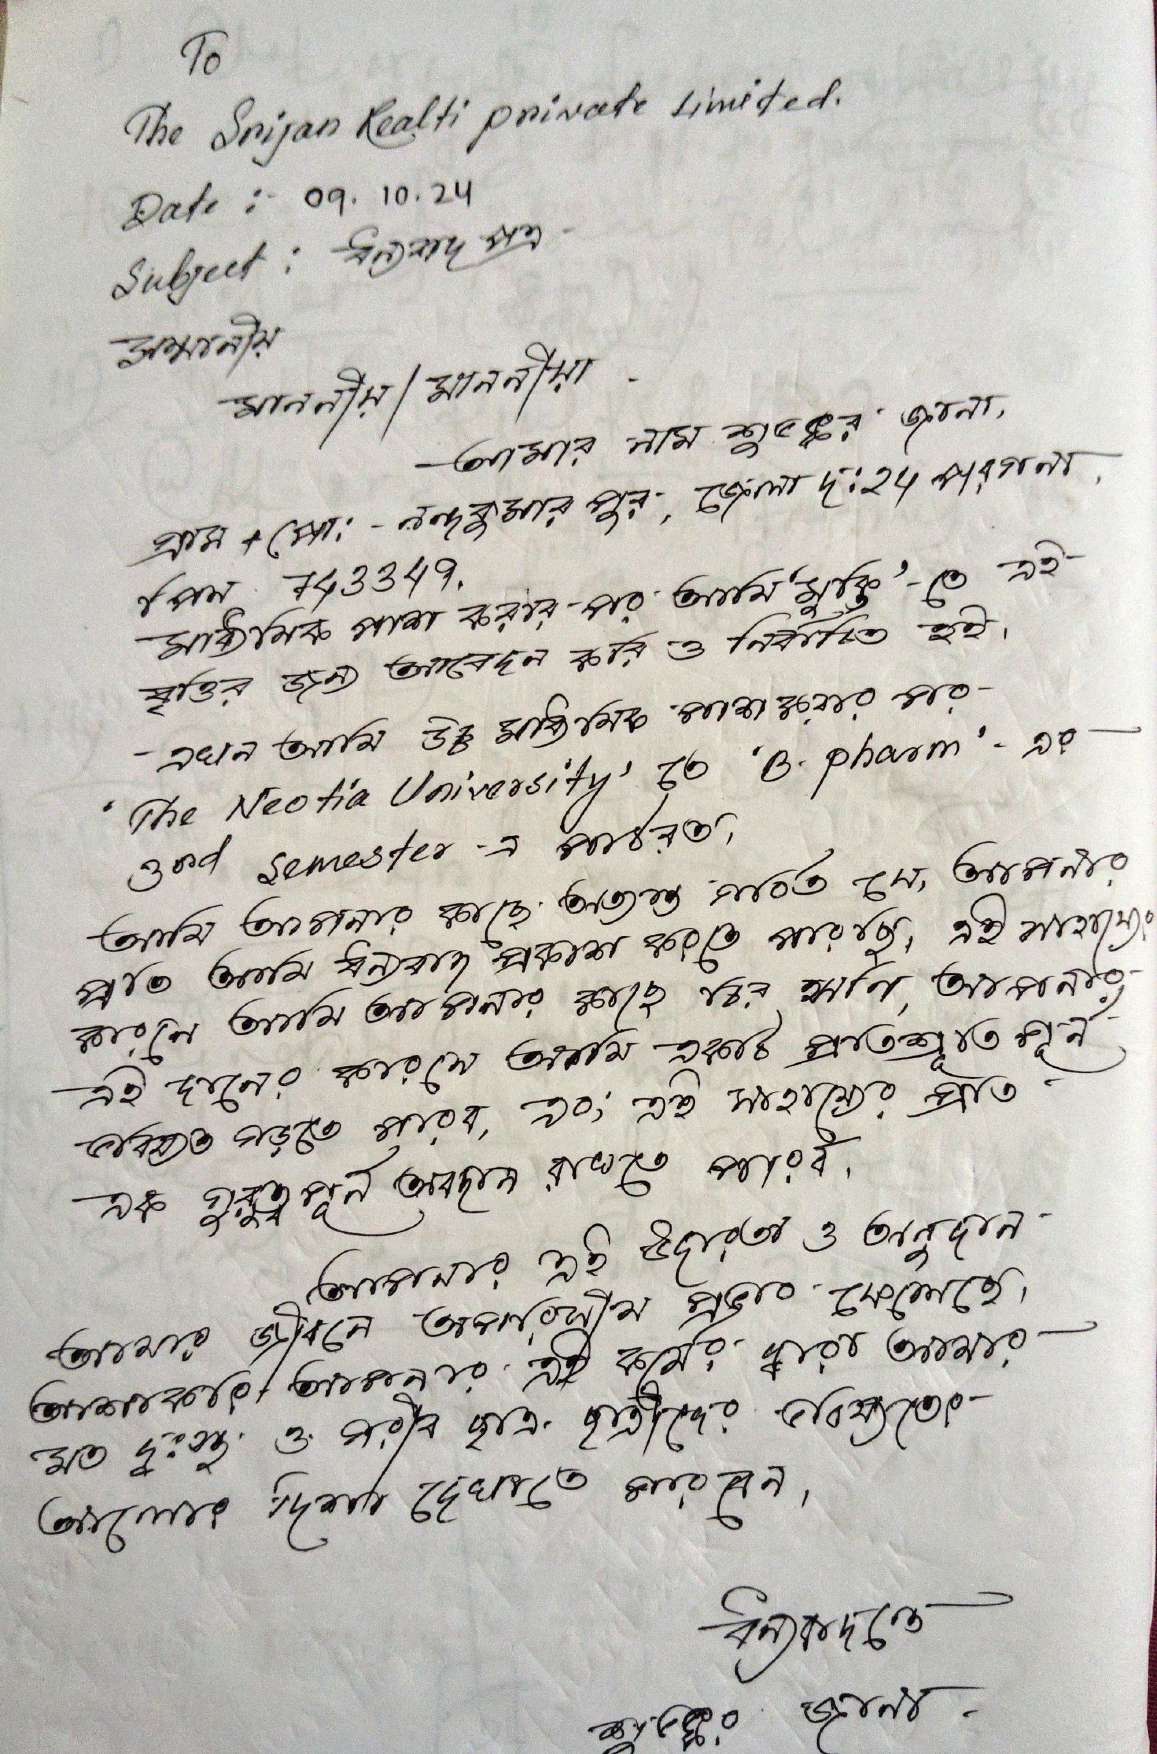 To
The Srijan Realti private Limited.
Date :- 09.10.24
Subject : ধন্যবাদ পত্র -
সম্মানীয়
মাননীয়/মাননীয়া -
আমার নাম শুভঙ্কর জানা,
গ্রাম + পো: - নন্দকুমার পুর, জেলা দ:২৪ পরগনা,
পিন 743349.
মাধ্যমিক পাশ করার পর আমি 'মুক্তি' - তে এই
বৃত্তির জন্য আবেদন করি ও নির্বাচিত হই,
এখন আমি উচ্চ মাধ্যমিক পাশ করার পর
'The Neotia University' তে 'B. pharm' - এর
3rd semester - এ পাঠরত,
আমি আপনার কাছে অত্যন্ত গর্বিত যে, আপনার
প্রতি আমি ধন্যবাদ প্রকাশ করতে পারছি, এই সাহায্যের
কারনে আমি আপনার কাছে চির ঋণি, আপনার
এই দানের কারনে আমি একটি প্রতিশ্রুতি পূর্ন
ভবিষ্যত গড়তে পারব, এবং এই সাহায্যের প্রতি
এক গুরুত্ব পূর্ন অবদান রাখতে পারব,
আপনার এই উদারতা ও অনুদান
আমার জীবনে অপরিসীম প্রভাব ফেলেছে,
আশাকরি আপনার এই কর্মের দ্বারা আমার
মত দুঃস্থ ও গরীব ছাত্র ছাত্রীদের ভবিষ্যতের
আলোর দিশা দেখাতে পারবেন,
ধন্যবাদান্তে
শুভঙ্কর জানা -